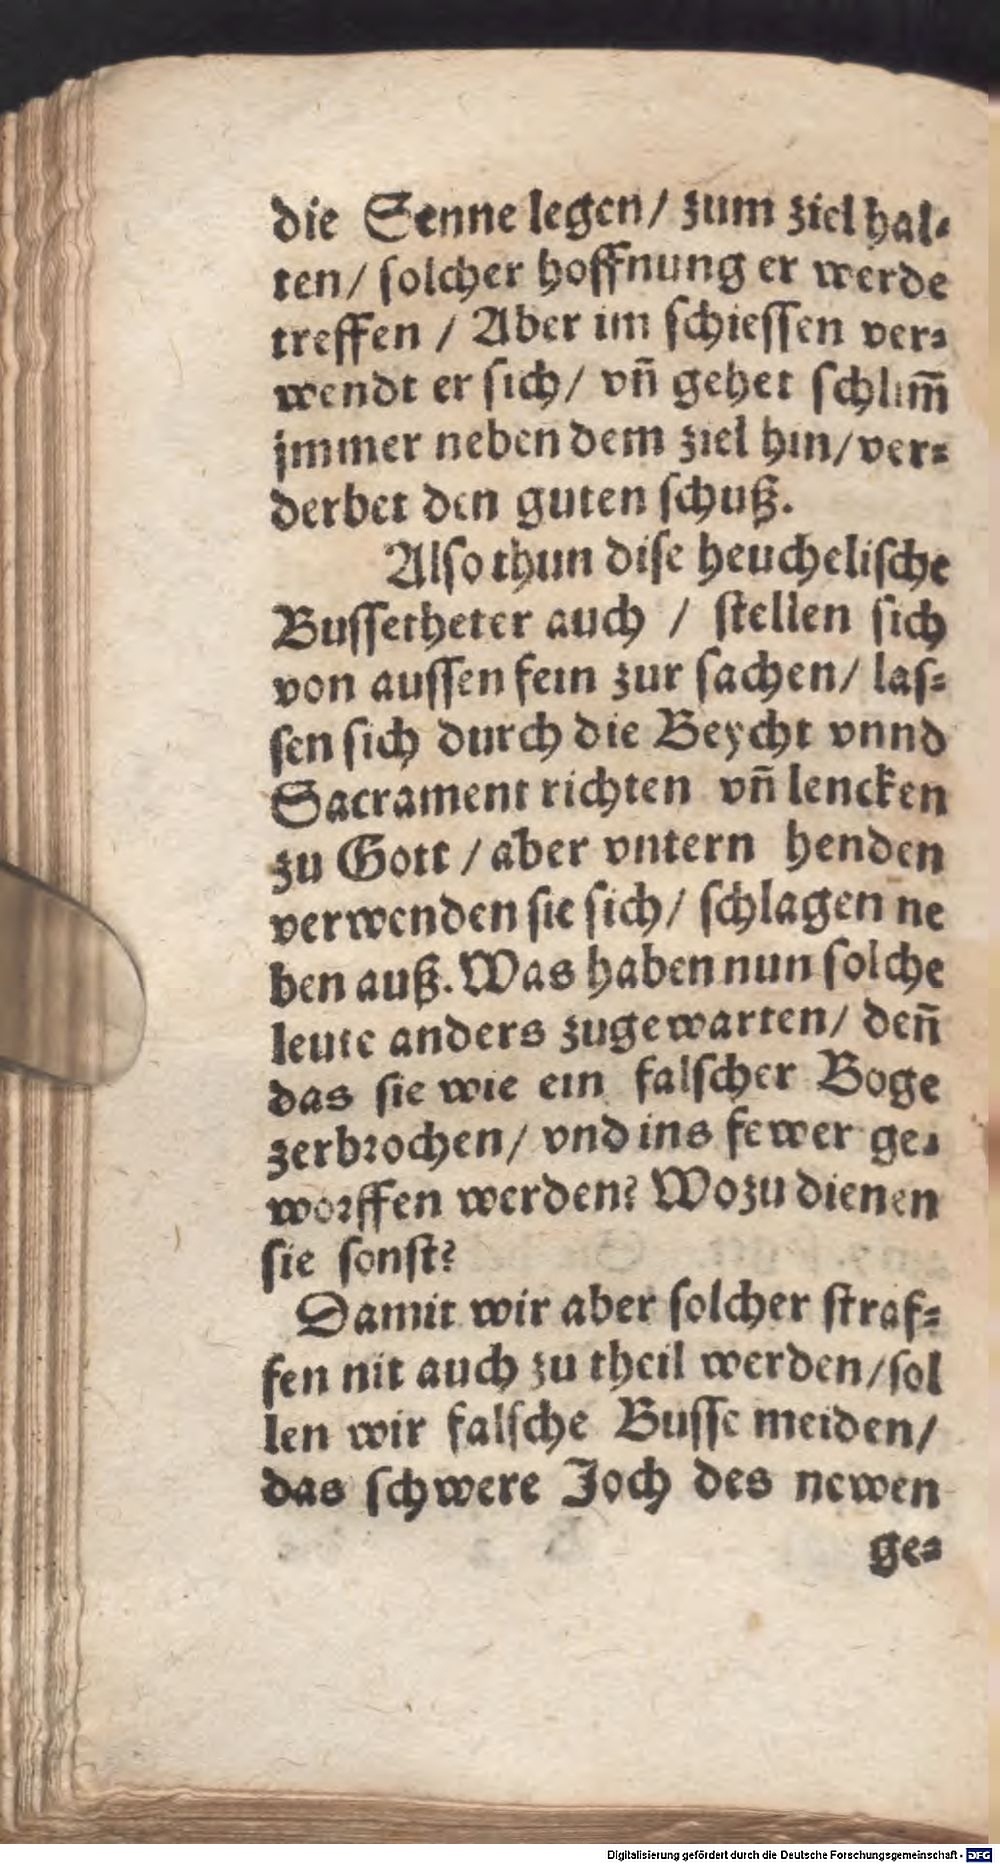 die Senne legen/ zum ziel hal-
ten/ solcher hoffnung er werde
treffen / Aber im schiessen ver-
wendt er sich/ vñ gehet schlim̃
jmmer neben dem ziel hin/ ver-
derbet den guten schuß.
Also thun dise heuchelische
Bussetheter auch / stellen sich
von aussen fein zur sachen/ las-
sen sich durch die Beycht vnnd
Sacrament richten vñ lencken
zu Gott / aber vntern henden
verwenden sie sich/ schlagen ne
ben auß. Was haben nun solche
leute anders zugewarten/ deñ
das sie wie ein falscher Boge
zerbrochen/ vnd ins fewer ge-
worffen werden? Wozu dienen
sie sonst?
Damit wir aber solcher straf-
fen nit auch zu theil werden/ sol
len wir falsche Busse meiden/
das schwere Joch des newen
ge-
Digitalisierung gefördert durch die Deutsche Forschungsgemeinschaft - DFG